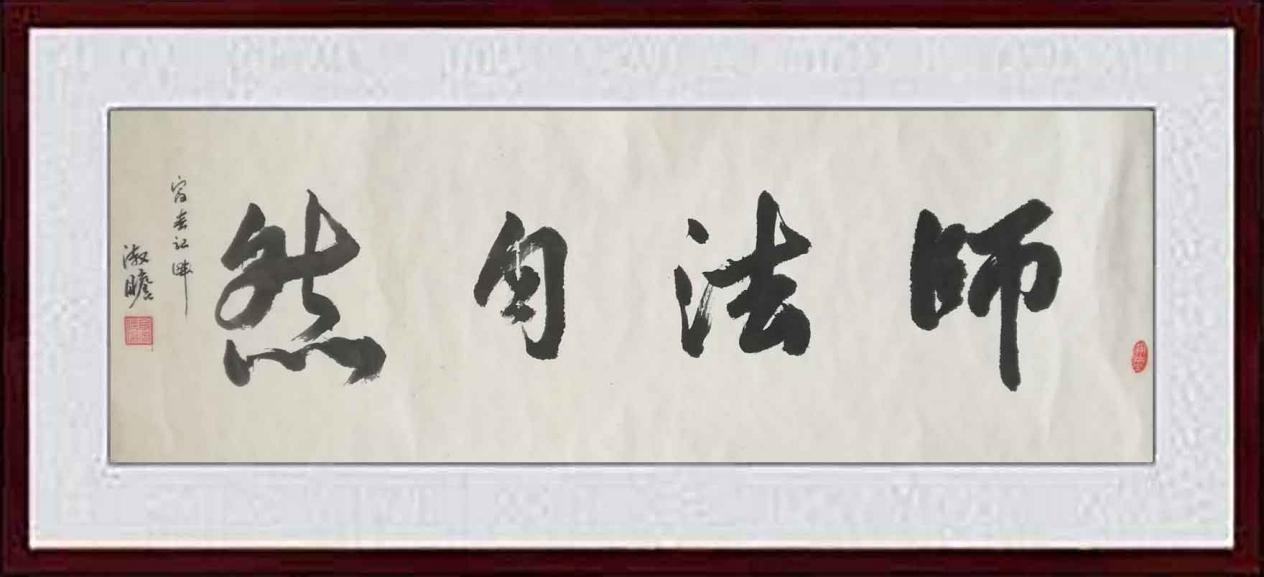 師法自然
淑瞻